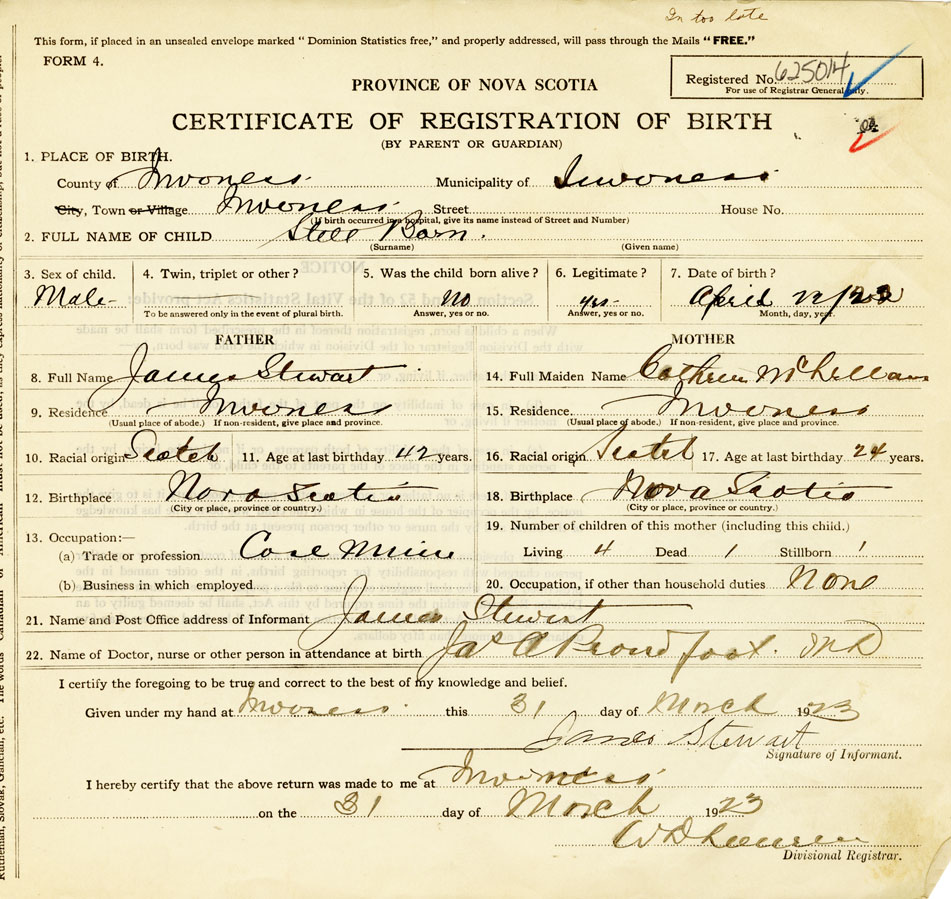 In too late
This form, if placed in an unsealed envelope marked "Dominion Statistics free," and properly addressed, will pass through the Mails "FREE."
FORM 4.
Registered No. 625014
For use of Registrar General only.
PROVINCE OF NOVA SCOTIA
CERTIFICATE OF REGISTRATION OF BIRTH
(BY PARENT OR GUARDIAN)
1. PLACE OF BIRTH.
County of Inverness Municipality of Inverness
City, Town or Village Inverness Street House No.
(If birth occurred in a hospital, give its name instead of Street and Number)
2. FULL NAME OF CHILD Still Born.
(Surname) (Given name)
3. Sex of child. 4. Twin, triplet or other? 5. Was the child born alive? 6. Legitimate? 7. Date of birth?
Male- No yes- April
To be answered only in the event of plural birth. Answer, yes or no. Answer, yes or no. Month, day, year.
FATHER MOTHER
8. Full Name James Stewart 14. Full Maiden Name
9. Residence Inverness 15. Residence. Inverness
(Usual place of abode.) If non-resident, give place and province. (Usual place of abode.) If non-resident, give place and province.
10. Racial origin Scotch 11. Age at last birthday 42 years. 16. Racial origin Scotch 17. Age at last birthday 24 years.
12. Birthplace Nova Scotia 18. Birthplace Nova Scotia
(City or place, province or country.) (City or place, province or country.)
13. Occupation:— 19. Number of children of this mother (including this child.)
(a) Trade or profession Coal Miner Living 4 Dead 1 Stillborn 1
(b) Business in which employed 20. Occupation, if other than household duties None
21. Name and Post Office address of Informant James Stewart
22. Name of Doctor, nurse or other person in attendance at birth Jas A Proudfoot. M D
I certify the foregoing to be true and correct to the best of my knowledge and belief.
Given under my hand at Inverness. this 31 day of March 1923
James Stewart
Signature of Informant.
I hereby certify that the above return was made to me at Inverness
on the 31 day of March 1923
Divisional Registrar.